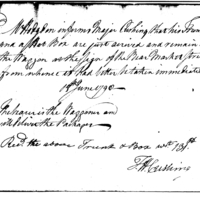 Mr Hodgdon informs Major Cushing that his Trunk
and a Box are just arrived and remain
the Waggon at the Sign of the Bear Market Street
from whence it had better be taken immediately
18th June 1792
The bearer is the Waggoner and
will deliver the Packages
Recd the above Trunk & Box
T H Cushing